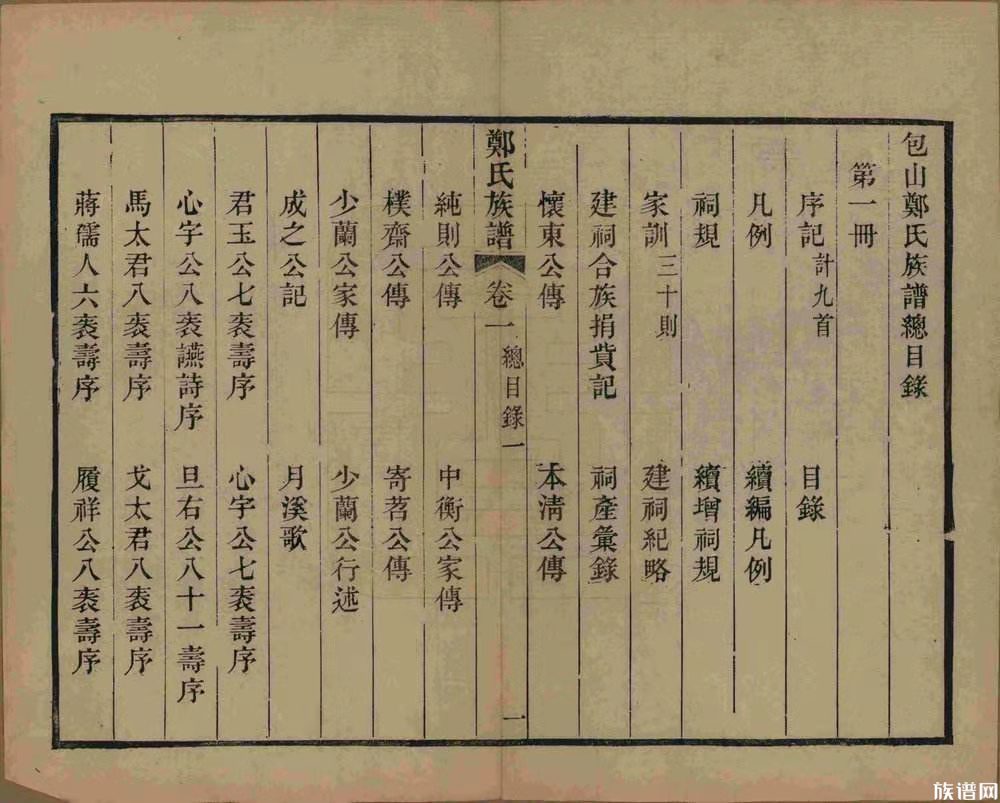 包山鄭氏族譜總目錄
第一冊
序記 計九首 目錄
凡例 續編凡例
祠規 續增祠規
家訓 三十則 建祠紀略
建祠合族捐貲記 祠產彙錄
懷東公傳 本淸公傳
鄭氏族譜 卷一 總目錄一 一
純則公傳 中衡公家傳
樸齋公傳 寄茗公傳
少蘭公家傳 少蘭公行述
成之公記 月溪歌
君玉公七袠壽序 心字公七袠壽序
心字公八袠讌詩序 旦右公八十一壽序
馬太君八袠壽序 戈太君八袠壽序
蔣儒人六袠壽序 履祥公八袠壽序
族谱网